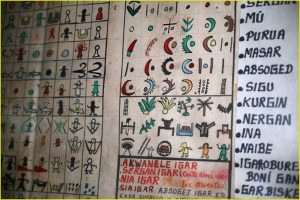 SERGAN
MÚ
PURUA
NASAR
ABSOGED
SIGU
KURGIN
NERGAN
INA
NAIBE
IGAROBURE
BONÍ GAN
GARBISKE
AKWANELE IGAR
SERGAN IGAR
NIA IGAR
SIA IGAR ABSOGET IGAR